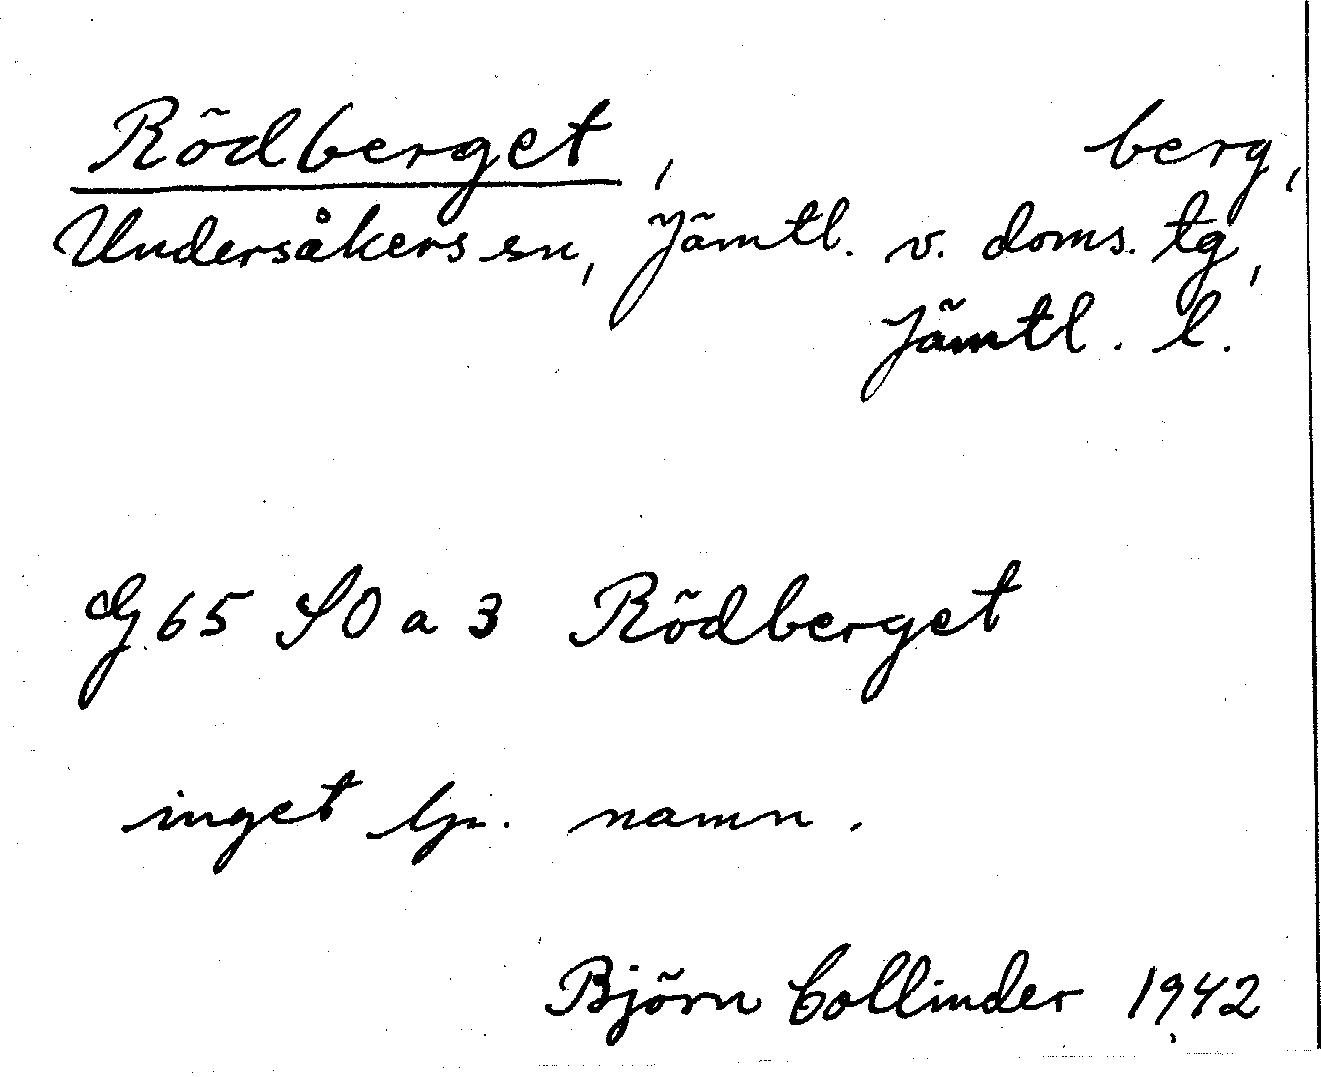 Rödberget, berg,
Undersåkers sn, Jämtl. v. doms. tg,
Jämtl. l.
G65 SO a 3 Rödberget
inget lp. namn.
Björn Collinder 1942